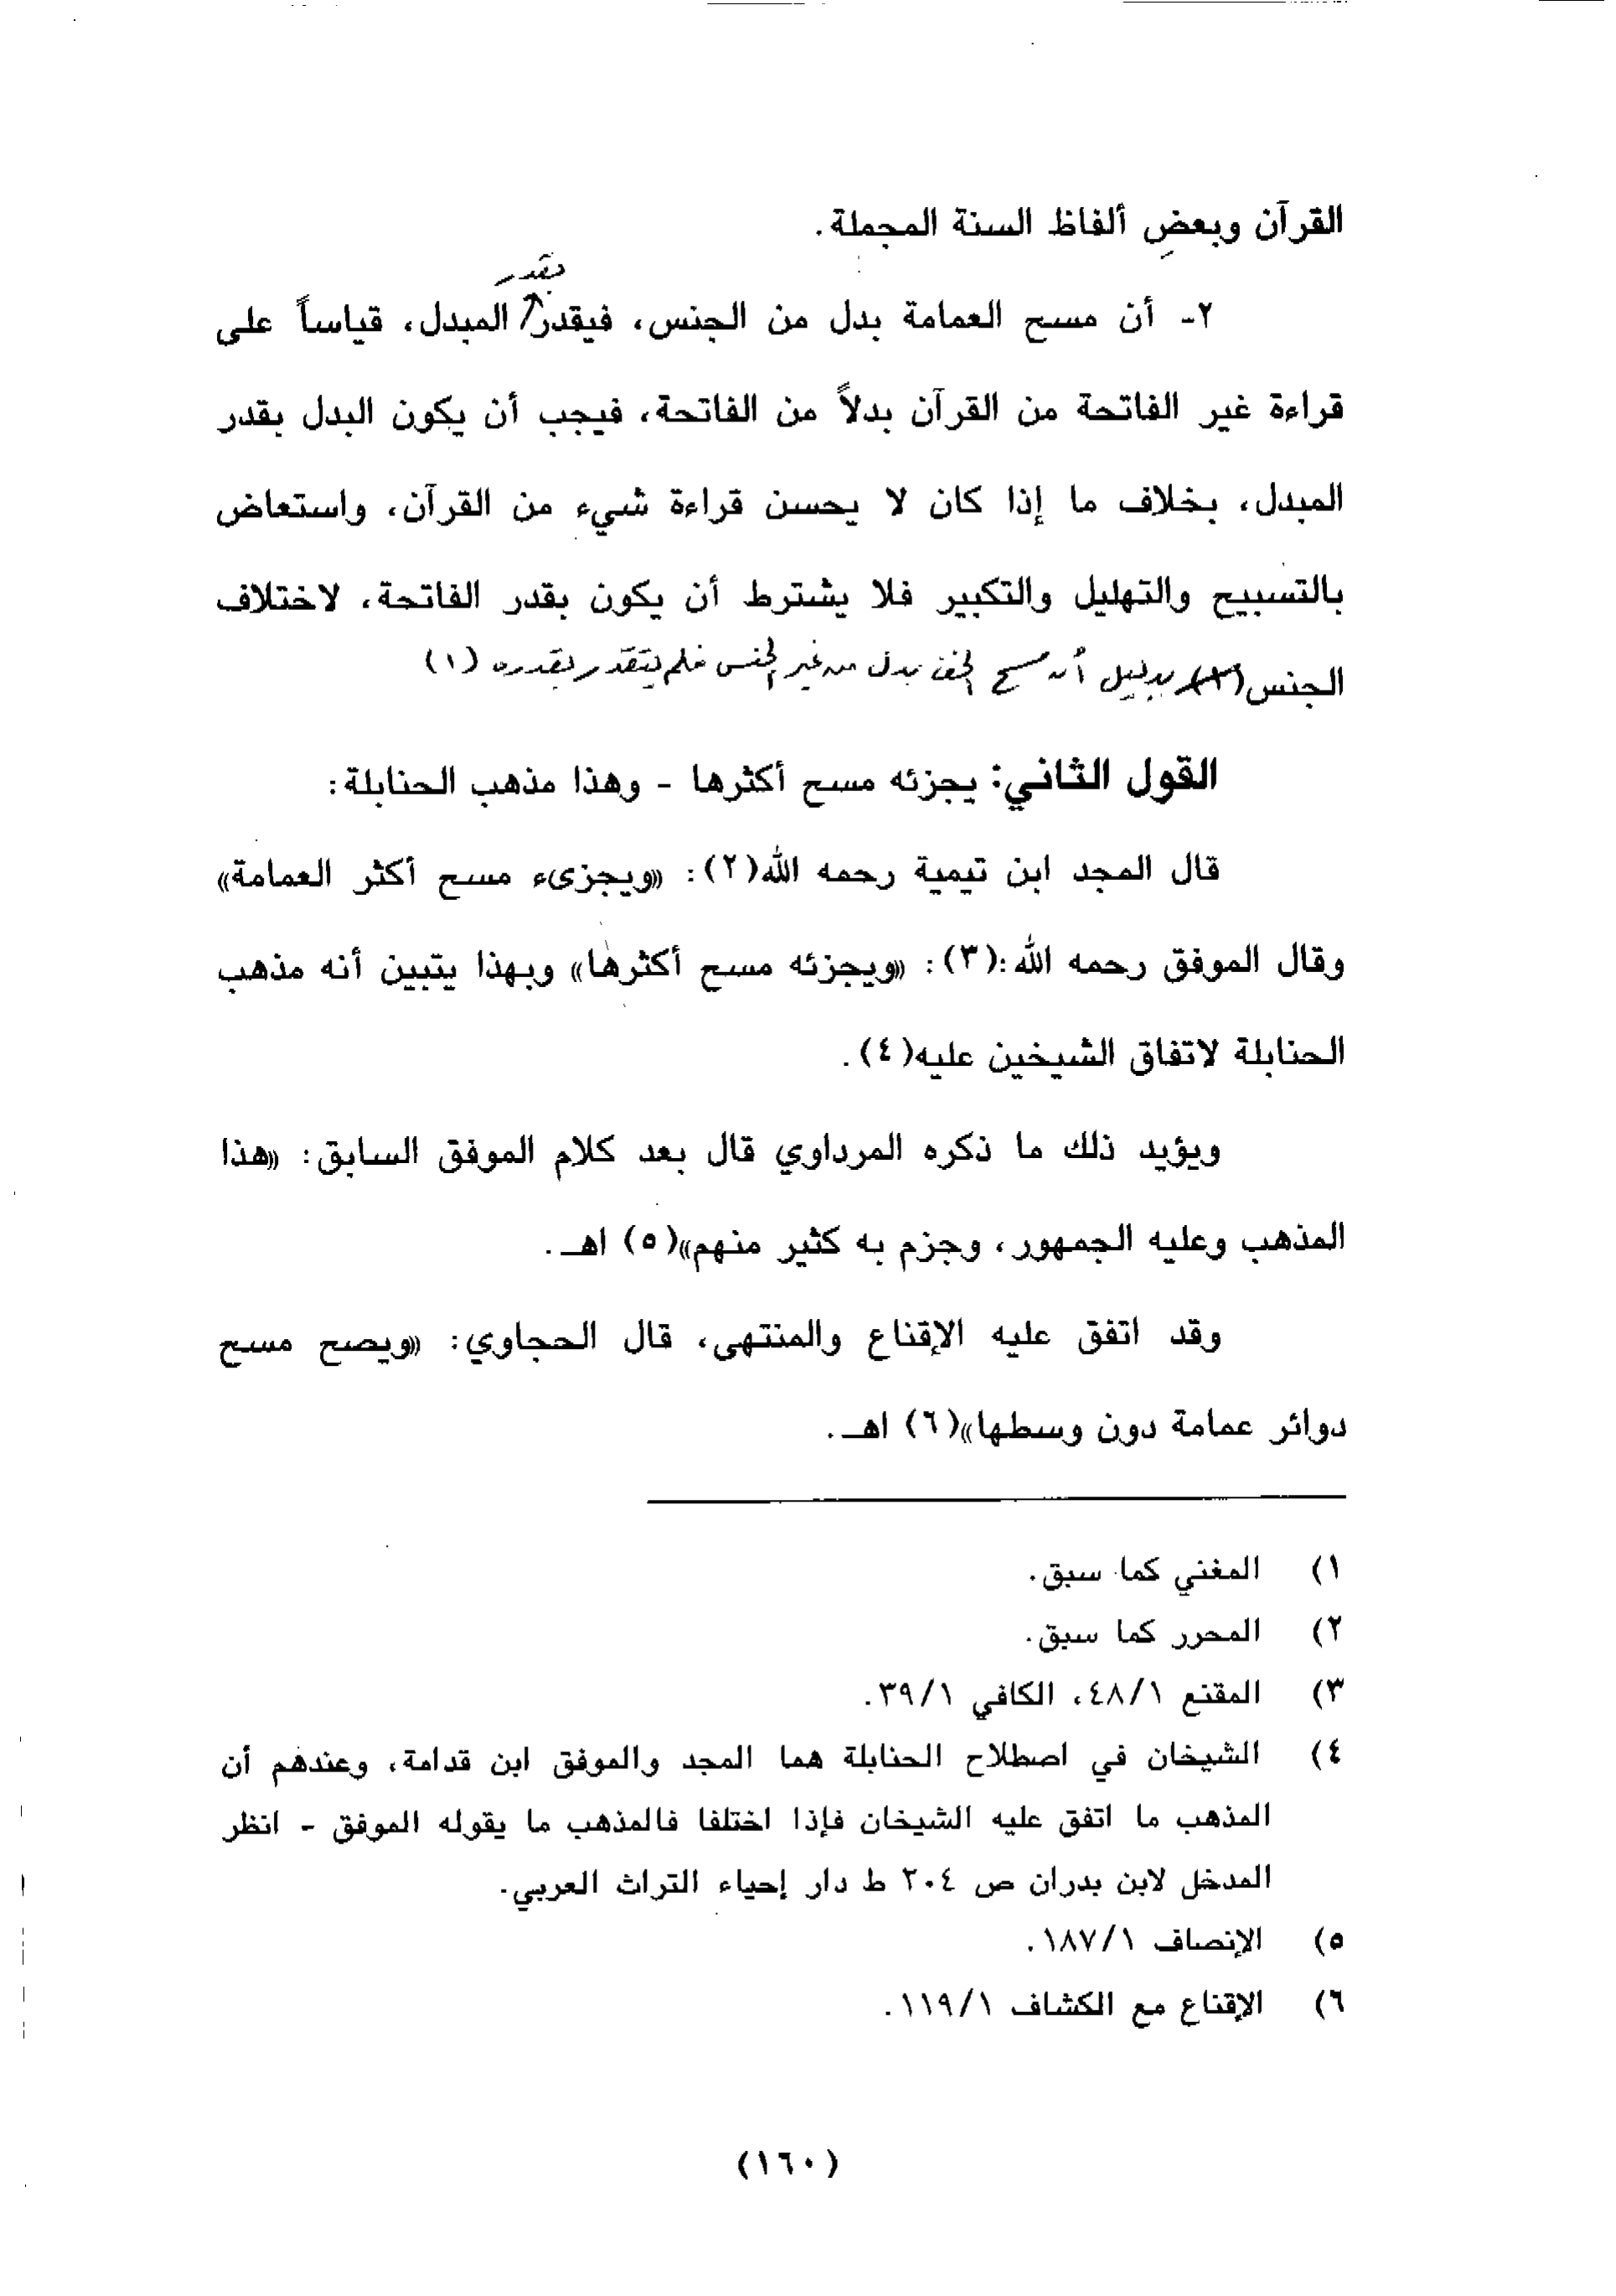 القرآن وبعض ألفاظ السنة المجملة.
بقدر
٢- أن مسح العمامة بدل من الجنس، فيقدر المبدل، قياساً على
قراءة غير الفاتحة من القرآن بدلاً من الفاتحة، فيجب أن يكون البدل بقدر
المبدل، بخلاف ما إذا كان لا يحسن قراءة شيء من القرآن، واستعاض
بالتسبيح والتهليل والتكبير فلا يشترط أن يكون بقدر الفاتحة، لاختلاف
الجنس(١) بدليل أن مسح الخف بدل من غير الجنس فلم يتقدر بقدره (١)
القول الثاني: يجزئه مسح أكثرها - وهذا مذهب الحنابلة:
قال المجد ابن تيمية رحمه الله(٢): «ويجزىء مسح أكثر العمامة»
وقال الموفق رحمه الله:(٣): «ويجزئه مسح أكثرها» وبهذا يتبين أنه مذهب
الحنابلة لاتفاق الشيخين عليه(٤).
ويؤيد ذلك ما ذكره المرداوي قال بعد كلام الموفق السابق: «هذا
المذهب وعليه الجمهور، وجزم به كثير منهم»(٥) اهـ.
وقد اتفق عليه الإقناع والمنتهى، قال الحجاوي: «ويصح مسح
دوائر عمامة دون وسطها»(٦) اهـ.
١) المغني كما سبق.
٢) المحرر كما سبق.
٣) المقنع ٤٨/١، الكافي ٣٩/١.
٤) الشيخان في اصطلاح الحنابلة هما المجد والموفق ابن قدامة، وعندهم أن
المذهب ما اتفق عليه الشيخان فإذا اختلفا فالمذهب ما يقوله الموفق - انظر
المدخل لابن بدران ص ٢٠٤ ط دار إحياء التراث العربي.
٥) الإنصاف ١٨٧/١.
٦) الإقناع مع الكشاف ١١٩/١.
(١٦٠)